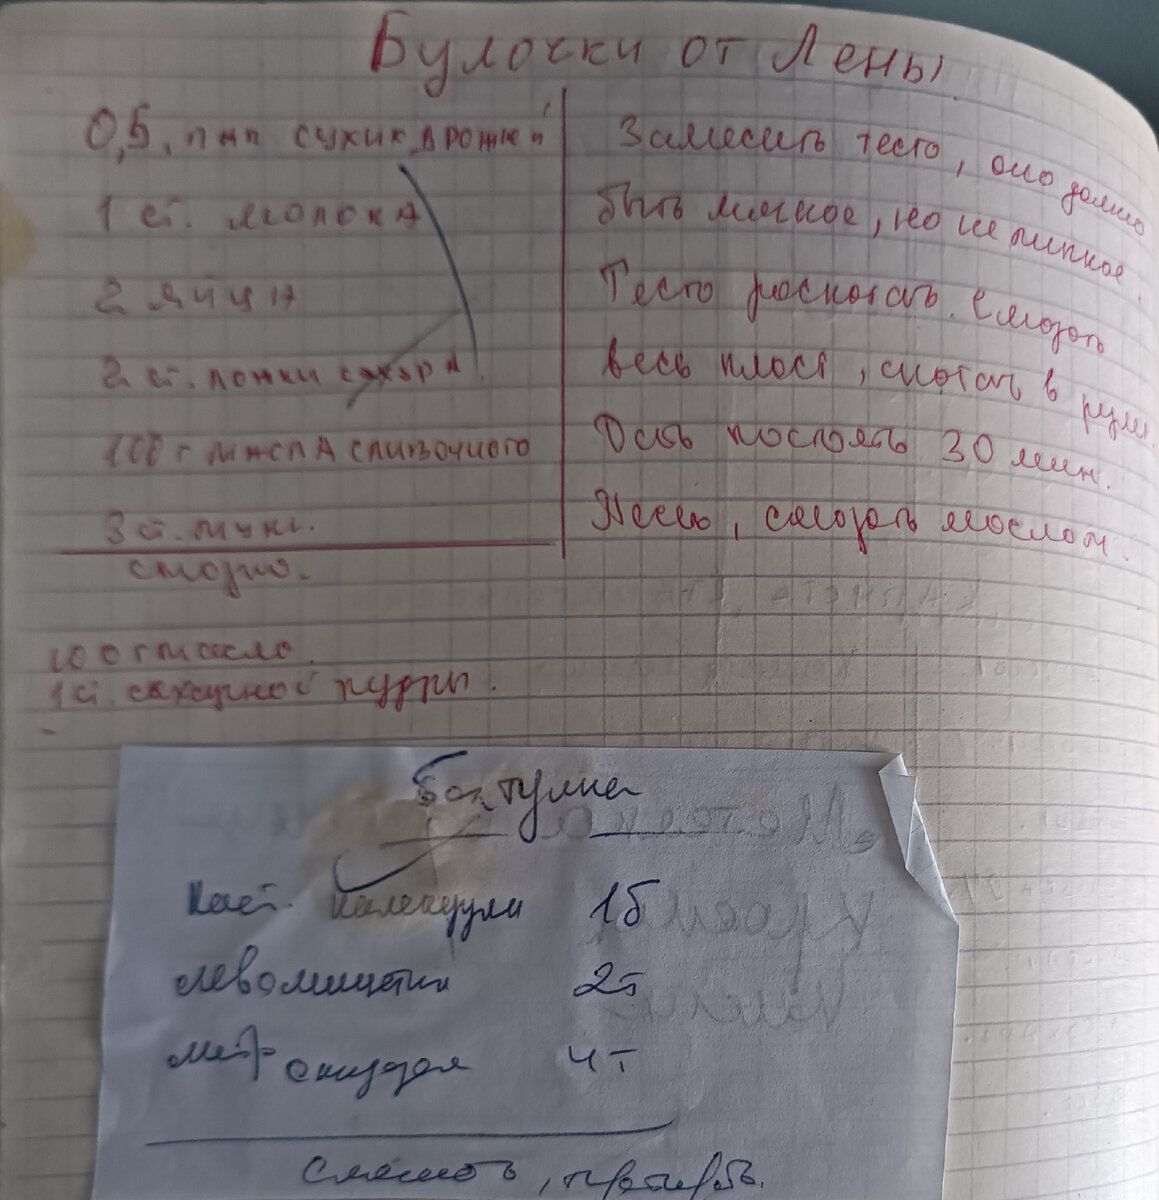 Булочки от Лены
0,5, пап сухих дрожжей
1 ст. молока
2 яйца
2 ст. ложки сахара
100 г масла сливочного
3 ст. муки.
смазка.
100 г масло.
1 ст. сахарной пудры.
Замесить тесто, оно должно
быть мягкое, но не липкое.
Тесто раскатать. Смазать
весь пласт, скатать в рулет.
Дать постоять 30 мин.
смазать маслом.
Болтушка
Наст. календулы 1б
левомицетин 2т
метронидазол 4т
Смешать,